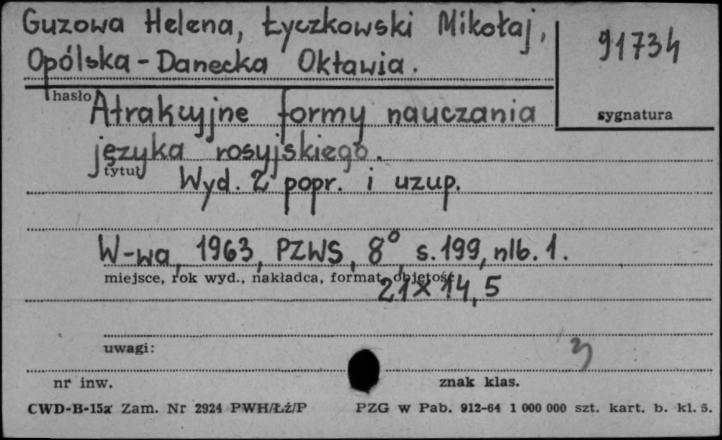 Guzowa Helena, Łyczkowski Mikołaj,
91734
Opólska-Danecka Oktawia.
hasło
Atrakcyjne formy nauczania
sygnatura
języka rosyjskiego.
tytuł
Wyd. 2 popr. i uzup.
W-wa, 1963, PZWS, 8°, s.199, nlb. 1.
miejsce, rok wyd., nakładca, format, objętość
21 x 14,5
uwagi:
nr inw.
znak klas.
CWD-B-15a Zam. Nr 2924 PWH/Łż/P PZG w Pab. 912-64 1 000 000 szt. kart. b. kl. 5.